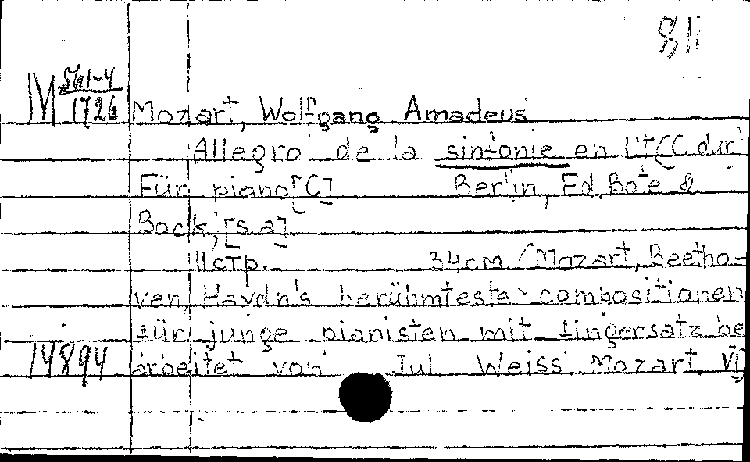 811
M 561-4
1726
Mozart, Wolfgang Amadeus
Allegro de la sinfonie en Ut (C dur)
Für piano [C] Berlin, Ed. Bote &
Bock, [s.a].
11 стр. 34 см (Mozart, Beetho-
ven, Haydn's berühmteste compositionen
für junge pianisten mit fingersatz be
14894 arbeitet von Jul. Weiss. Mozart. VI)